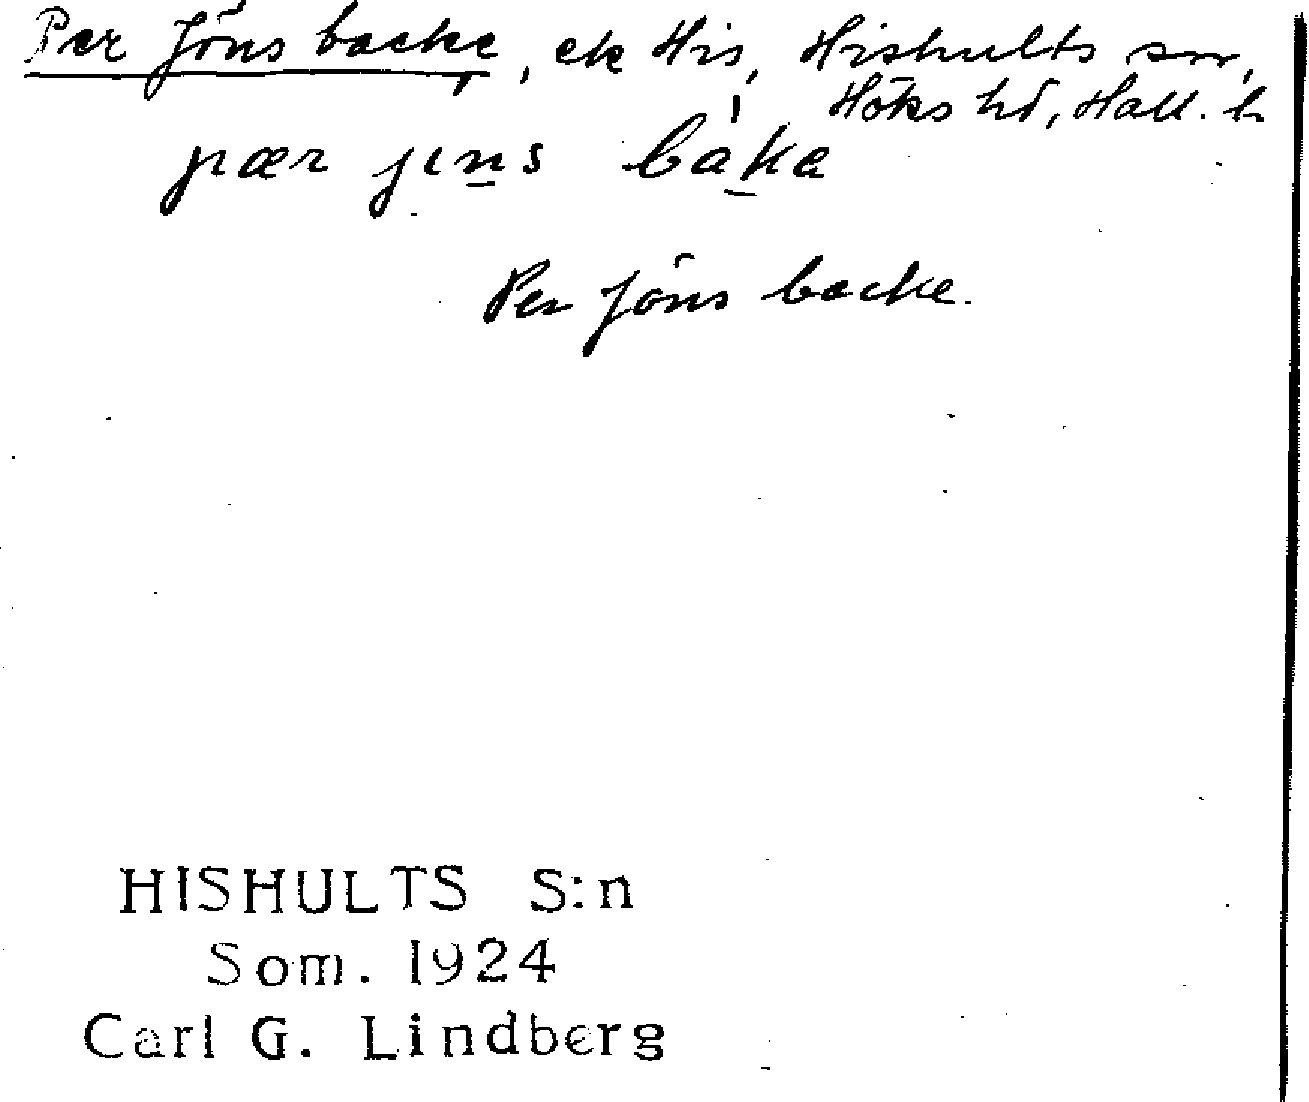 Per Jöns backe, ek His, Hishults sn,
Höks hd, Hall. l.
pær jɩns bàke
Per Jöns backe.
HISHULTS S:n
Som. 1924
Carl G. Lindberg